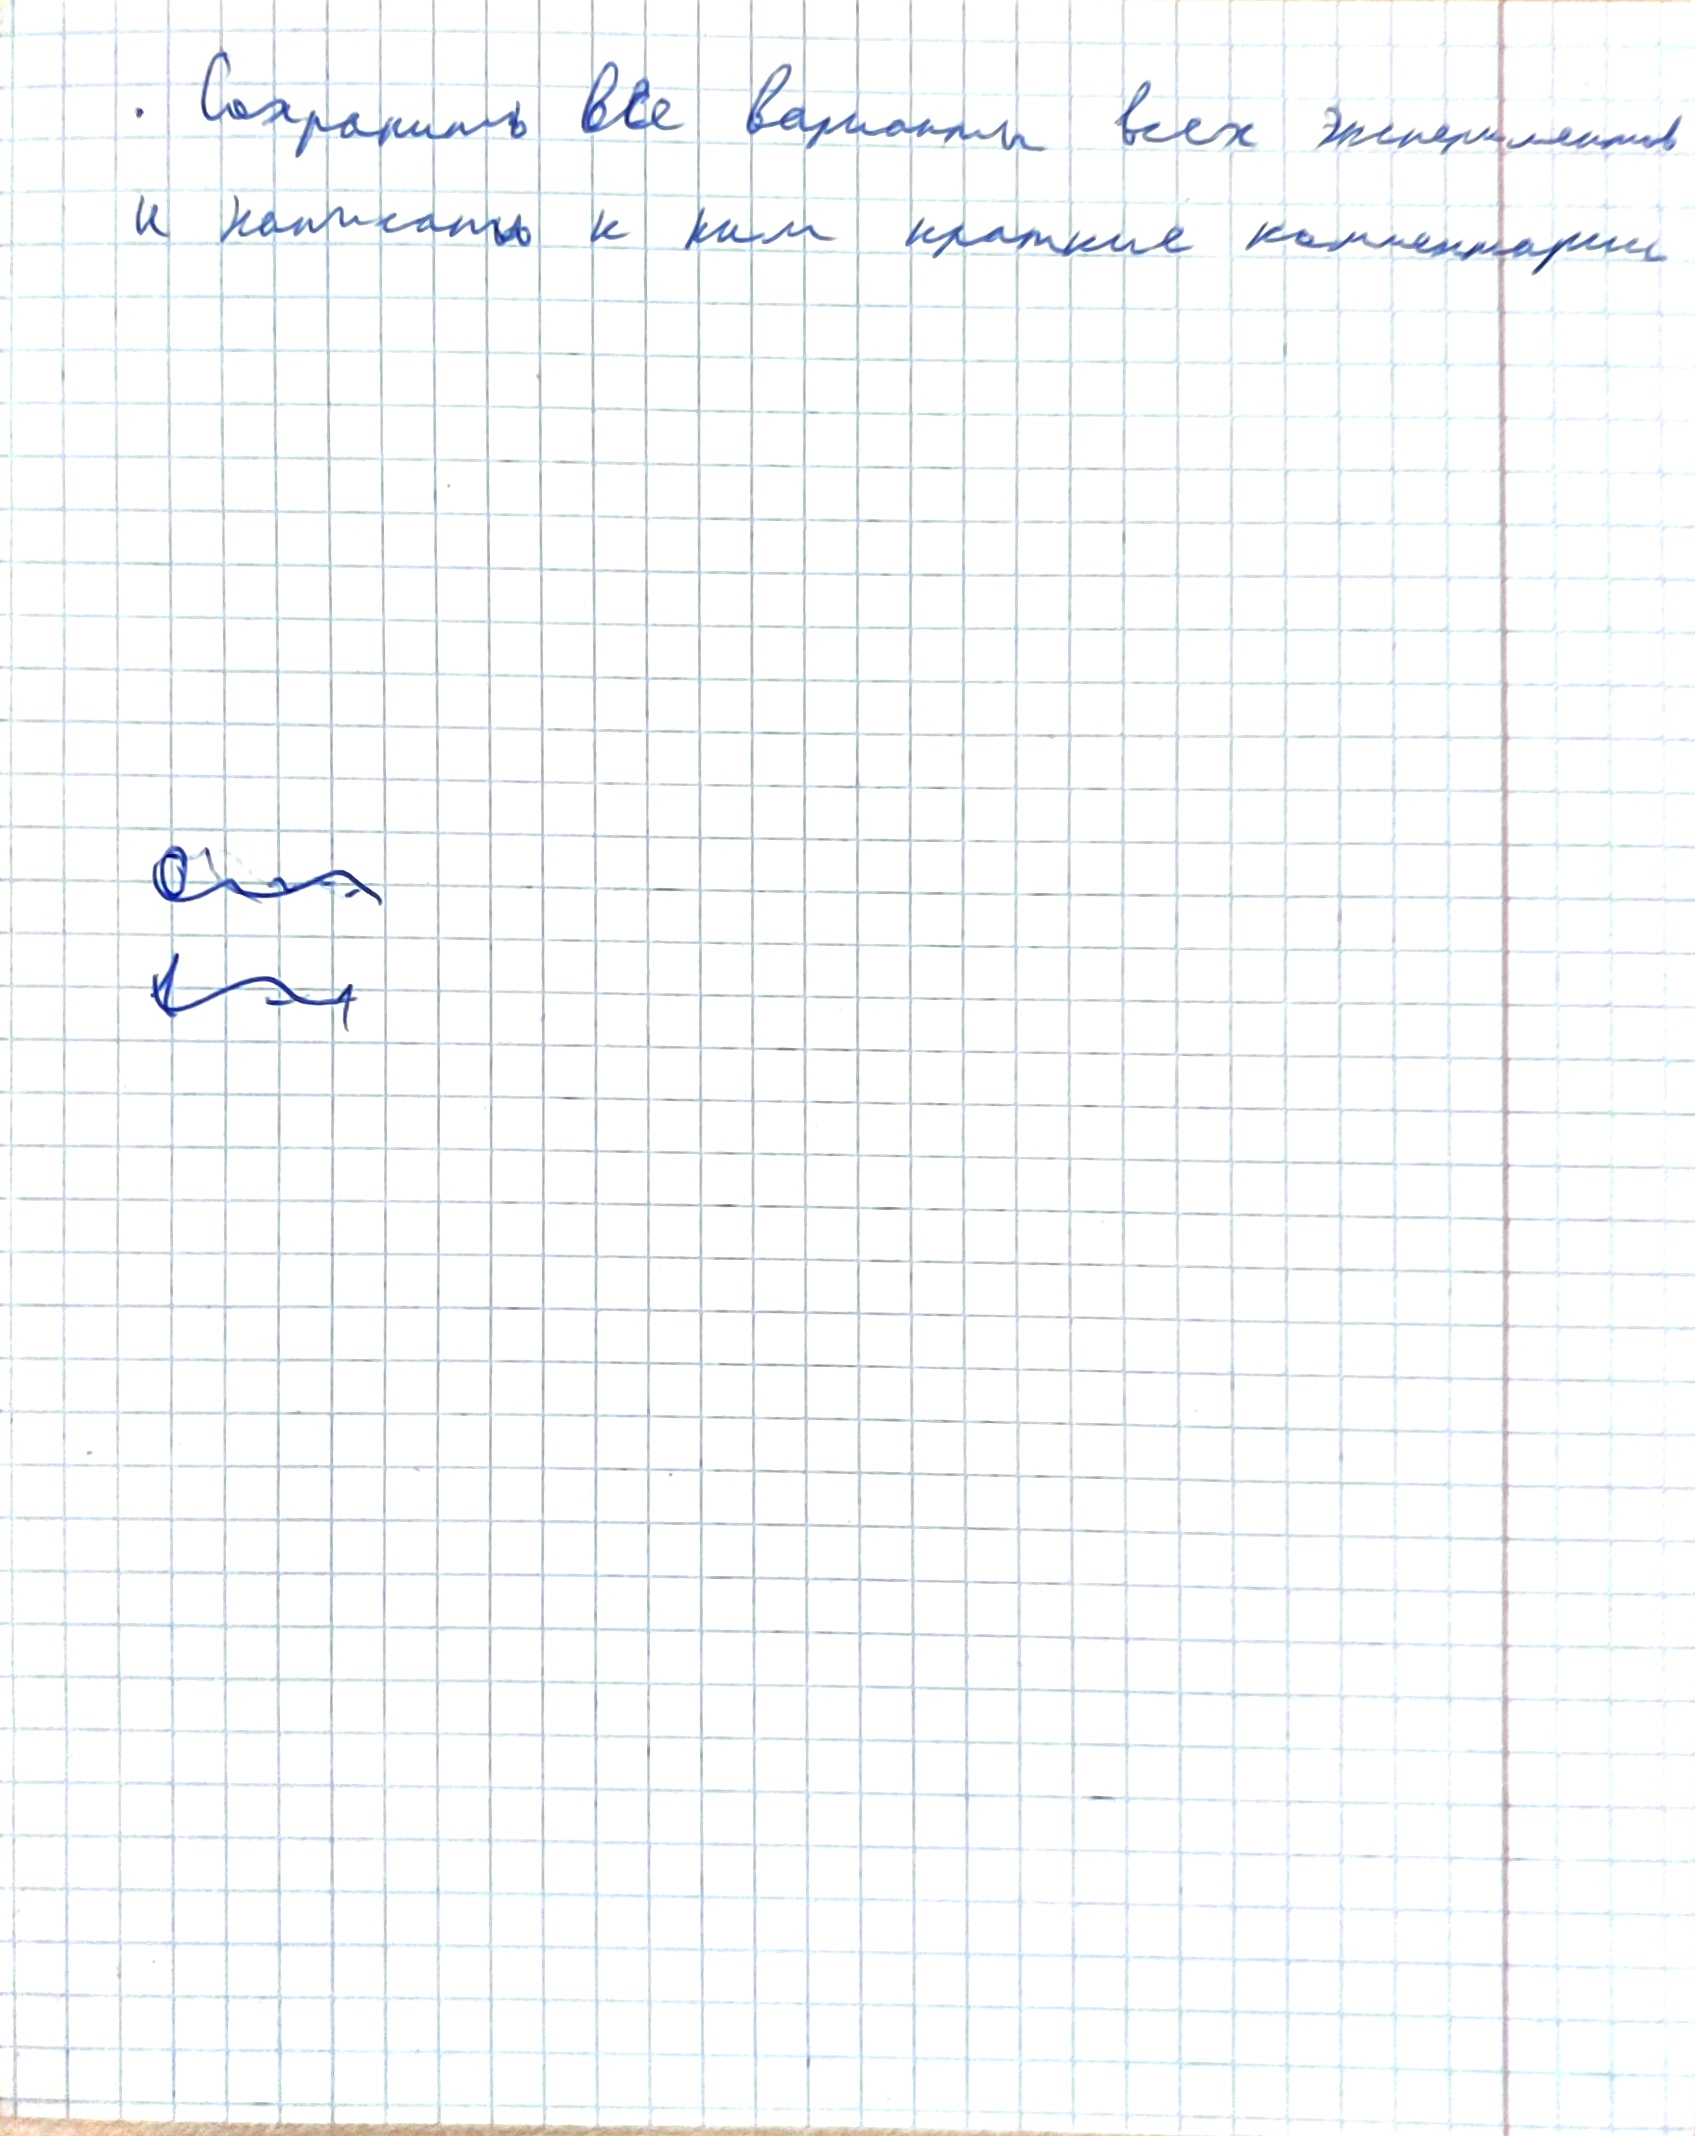 · Сохранить все варианты всех экспериментов
и написать к ним краткие комментарии